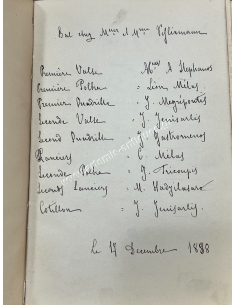 Bal chez Mons et Mme Schliemann
Première Valse Mons A Stephanos
Première Polka = Léon Mélas
Premier Quadrille = J. Negrepontis
Seconde Valse = J. Jenisarlis
Second Quadrille = J. Gastromenos
Lanciers = C. Mélas
Seconde Polka = J. Tricoupis
Seconds Lanciers = M. Hadgilazaro
Cotillon = J. Jenisarlis
le 17 Decembre 1898